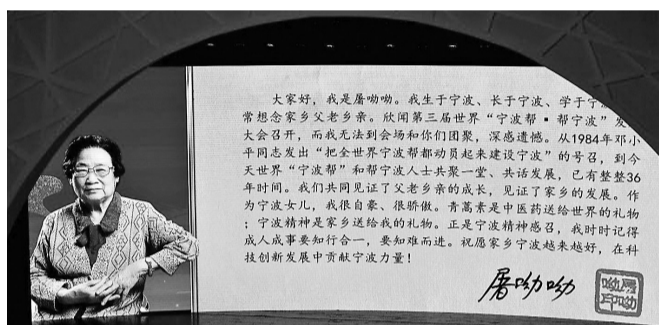 大家好，我是屠呦呦。我生于宁波、长于宁波、学于宁
常想念家乡父老乡亲。欣闻第三届世界“宁波帮·帮宁波”发
大会召开，而我无法到会场和你们团聚，深感遗憾。从1984年邓小
平同志发出“把全世界宁波帮都动员起来建设宁波”的号召，到今
天世界“宁波帮”和帮宁波人士共聚一堂、共话发展，已有整整36
年时间。我们共同见证了父老乡亲的成长，见证了家乡的发展。作
为宁波女儿，我很自豪、很骄傲。青蒿素是中医药送给世界的礼物
；宁波精神是家乡送给我的礼物。正是宁波精神感召，我时时记得
成人成事要知行合一，要知难而进。祝愿家乡宁波越来越好，在科
技创新发展中贡献宁波力量！
屠呦呦
屠呦呦印